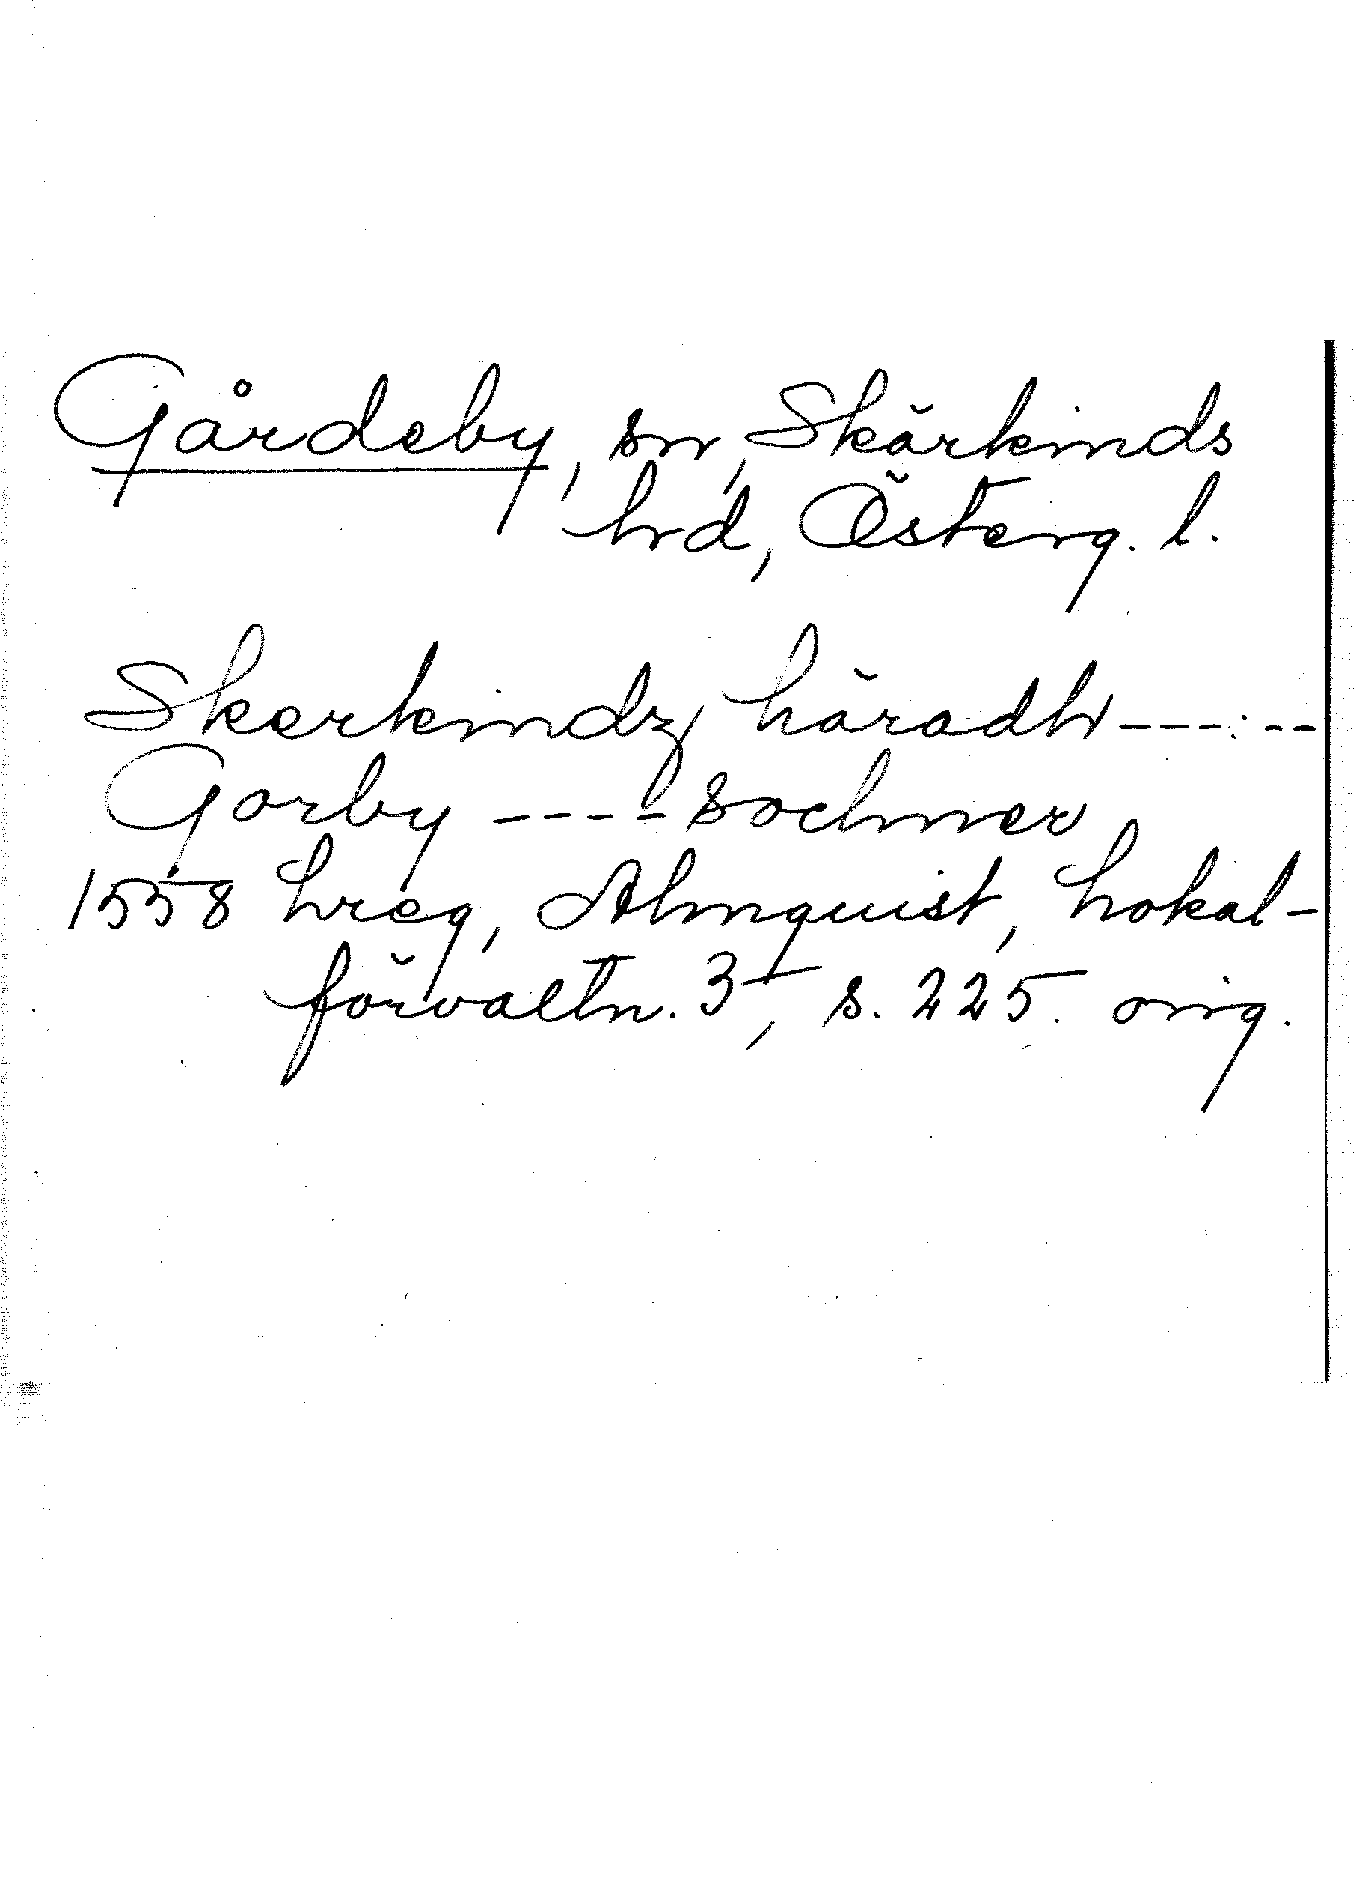 Gårdeby, sn, Skärkinds
hrd, Österg. l.
Skerkindz häradh ------
Gorby ---- sochner
1558 hreg, Almquist, Lokal-
förvaltn. 3, s. 225. orig.